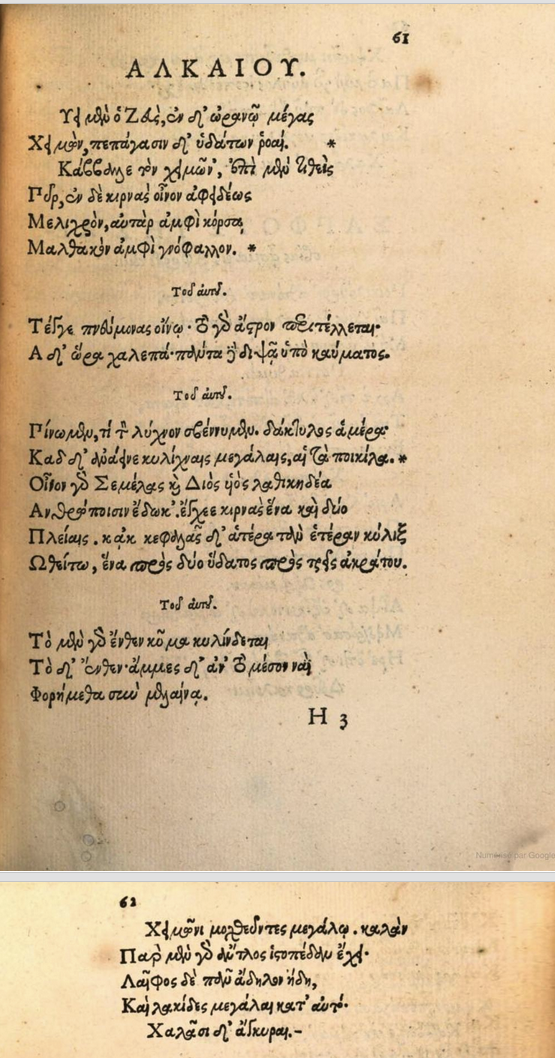 61
ΑΛΚΑΙΟΥ.
Ὑει μὲν ὁ Ζεὺς, ἐν δ' ὠρανῷ μέγας
Χειμὼν, πεπάγασιν δ' ὑδάτων ῥοαί. *
Κάββαλλε τὸν χειμῶν', ἐπὶ μὲν τιθεὶς
Πῦρ, ἐν δὲ κιρνὰς οἶνον ἀφειδέως
Μελιχρὸν, αὐτὰρ ἀμφὶ κόρσᾳ
Μαλθακὸν ἀμφὶ γνόφαλλον. *
Τοῦ αὐτοῦ.
Τέγγε πνεύμονας οἴνῳ· τὸ γὰρ ἄστρον περιτέλλεται·
Α δ' ὥρα χαλεπά· πάντα δὲ διψᾷ ὑπὸ καύματος.
Τοῦ αὐτοῦ.
Πίνωμεν, τί τὸ λύχνον σβέννυμεν. δάκτυλος ἁμέρα·
Καδ δ' κυλίχναις μεγάλαις, αἶ ποικίλα. *
Οἶνον γὰρ Σεμέλας καὶ Διὸς ὑὸς λαθικηδέα
Ανθρώποισιν ἔδωκ'. ἔγχεε κιρνὰς ἕνα καὶ δύο
Πλείαις. κὰκ κεφαλᾶς δ' ἁτέρα τὰν ἑτέραν κύλιξ
Ωθείτω, ἕνα πρὸς δύο ὕδατος πρὸς τρεῖς ἀκράτου.
Τοῦ αὐτοῦ.
Τὸ μὲν γὰρ ἔνθεν κῦμα κυλίνδεται
Τὸ δ' ἔνθεν· ἄμμες δ' ἀν' τὸ μέσον ναῒ
Φορήμεθα σὺν μελαίνᾳ.
Η 3
62
Χειμῶνι μοχθεῦντες μεγάλῳ. καλὰν
Παρ μὲν γὰρ ἄντλος ἱστοπέδαν ἔχει·
Λαῖφος δὲ πᾶν ἄδηλον ἤδη,
Καὶ λακίδες μεγάλαι κατ' αὐτό·
Χαλᾶσι δ' ἄγκυραι.-
Numérisé par Google